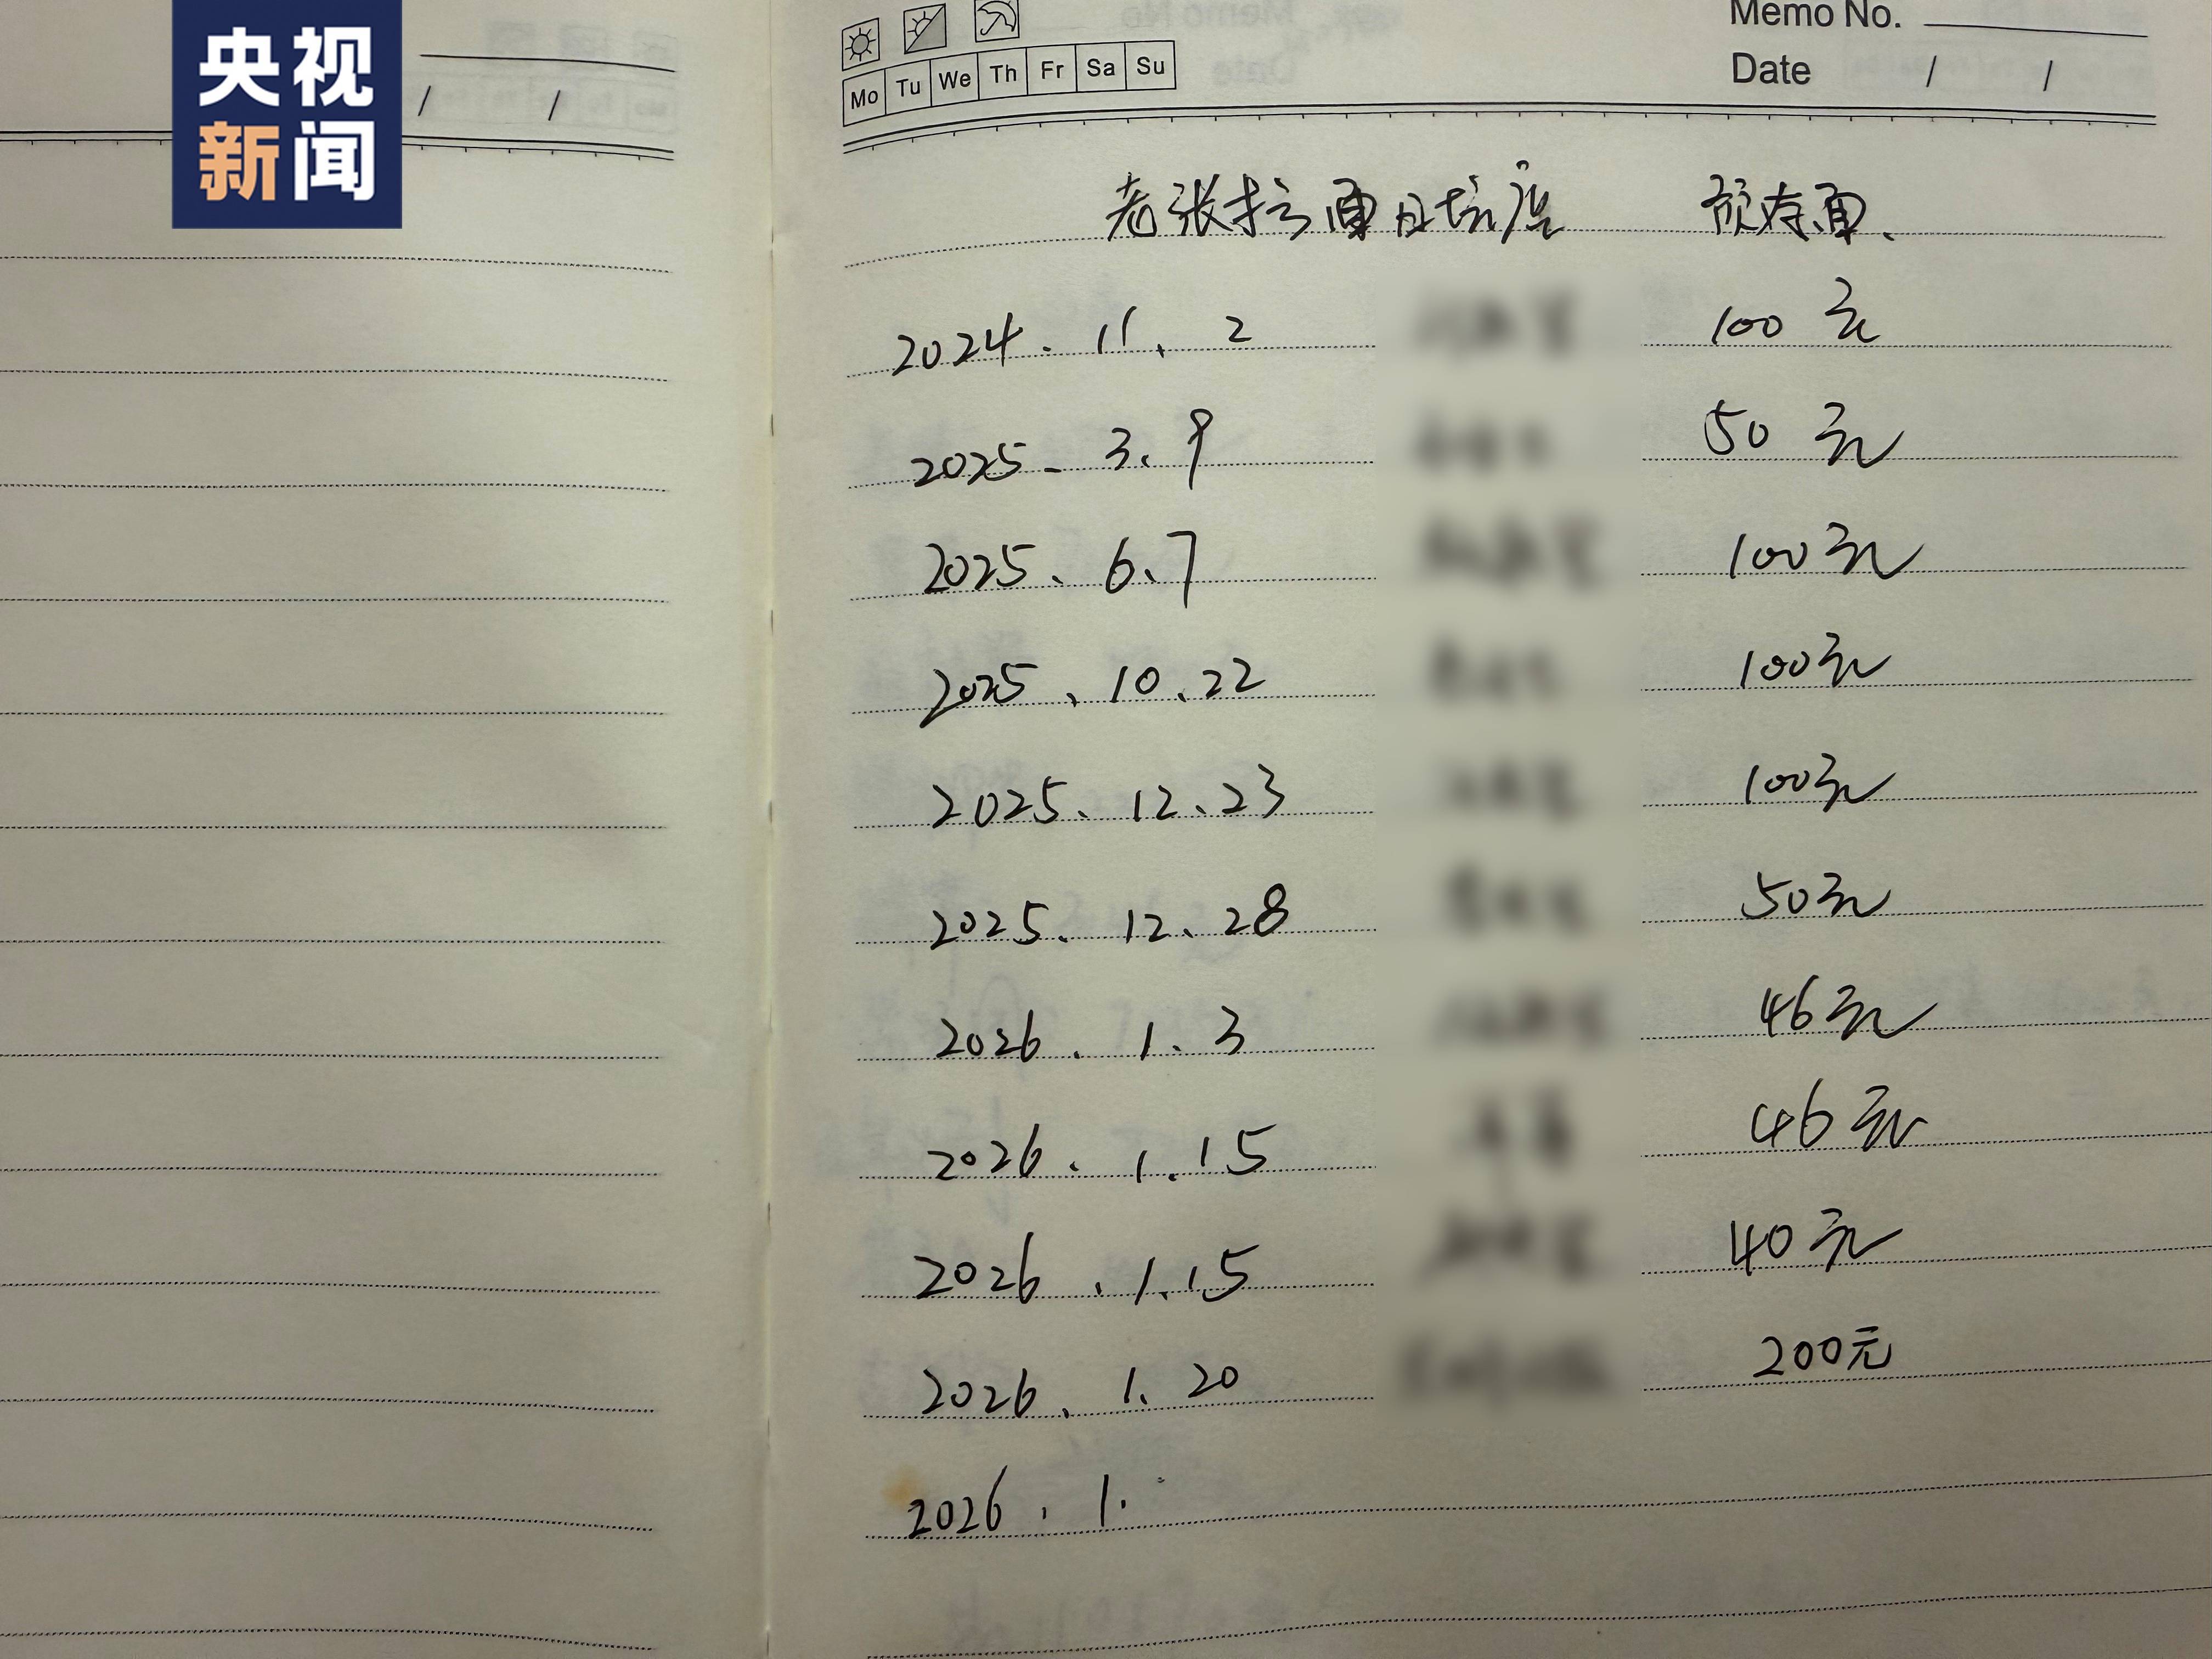 央视
新闻
Memo No.
Date / /
/ /
Mo Tu We Th Fr Sa Su
老张拉面 预存面.
2024. 11. 2 100元
2025. 3. 9 50元
2025. 6.7 100元
2025. 10.22 100元
2025. 12.23 100元
2025. 12.28 50元
2026. 1. 3 46元
2026. 1.15 46元
2026. 1.15 40元
2026. 1. 20 200元
2026. 1.